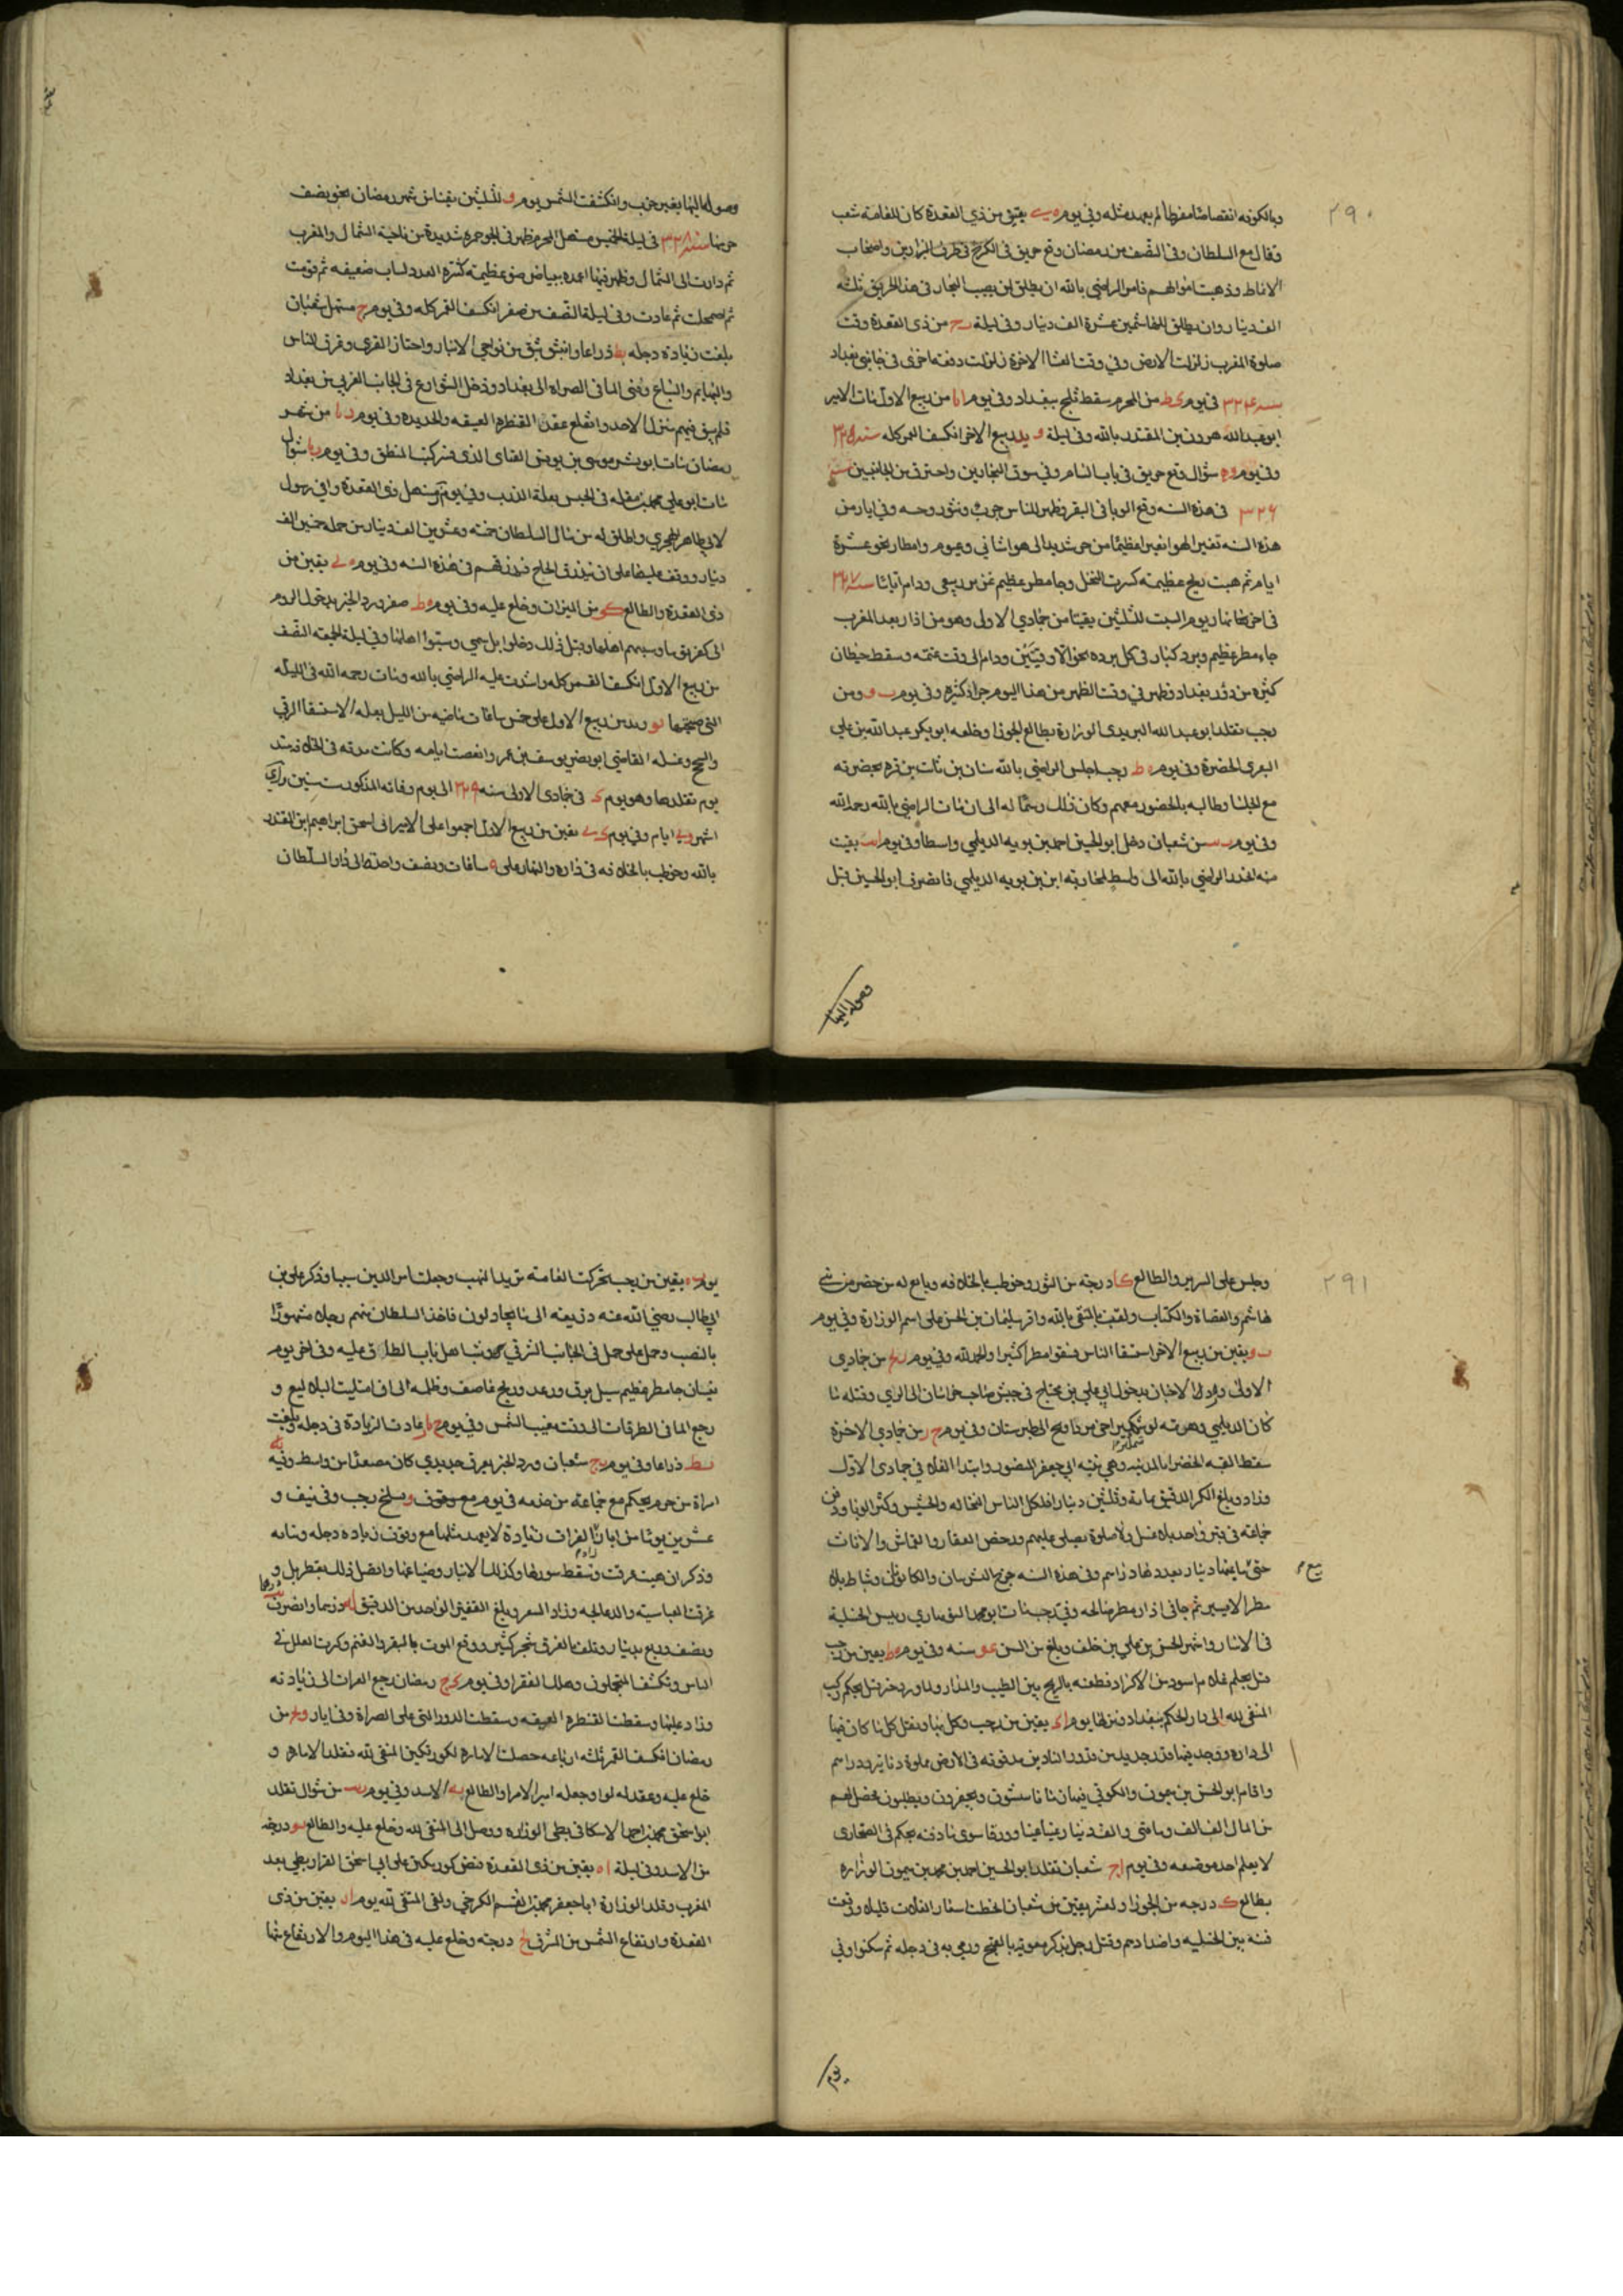 ٢٩٠
وبالكوفه انقضاضا مفرطا لم يعهد مثله وفي يوم يه بقين من ذي القعدة كان للعامة شعب
وقال مع السلطان وفي النصف من رمضان وقع حريق في الكرخ في طرف البزازين واصحاب
الانماط وذهبت اموالهم فامر الراضي بالله ان يطلق لمن يصيب التجار في هذا الحريق ثلثه
الف دينار وان يطلق للهاشميين عشرة الف دينار وفي ليلة من ذي القعدة وقت
صلوة المغرب زلزلت الارض وفي وقت العشا الاخرة زلزلت دفعه اخرى في جانبي بغداد
سنه ٣٢٤ في يوم كط من المحرم سقط ثلج ببغداد وفي يوم من ربيع الاول مات الامير
ابو عبد الله هرون بن المقتدر بالله وفي ليلة يد ربيع الاخر انكسف القمر كله سنه ٣٢٥
وفي يوم شوال وقع حريق في باب الشام وفي سوق النجارين واحترق من الجانبين سنه
٣٢٦ في هذه السنه وقع الوبا في البقر وظهر للناس جرب وبثور وحسه وفي ايار من
هذه السنه تغير الهوا تغيرا عظيما من حر شديد الى هوا شاتي وغيوم وامطار نحو عشرة
ايام ثم هبت ريح عظيمة كسرت النخل وجا مطر عظيم غزير ربيعي ودام اياما سنه ٣٢٧
في اخرها نهار يوم السبت لثلثين بقيتا من جمادي الاولى وهو من اذار بعد المغرب
جاء مطر عظيم وبرد كبار في كل برده نحو الاوقيتين ودام الى وقت عتمه وسقط حيطان
كثيره من دور بغداد وظهر في وقت الظهر من هذا اليوم جراد كثيره وفي يوم ومن
رجب تقلد ابو عبد الله البريدي الوزارة بطالع الجوزا وخلفه ابو بكر عبد الله بن علي
البقري الحضرة وفي يوم ط رجب اجلس الراضي بالله سنان بن ثابت بن قره بحضرته
مع الجلسا وطالبه بالحضور معهم وكان ذلك رسما له الى ان مات الراضي بالله رحمه الله
وفي يوم من شعبان دخل ابو الحسين احمد بن بويه الديلمي واسطا وفي يوم بقيت
منه انحدر الراضي بالله الى واسط لمحاربة ابن بويه الديلمي فانصرف ابو الحسين قبل
وصوله اليها
وصوله اليها بغير حرب وانكسفت الشمس يوم لثلثين بقيتا من شهر رمضان نحو نصف
جرمها سنه ٣٢٨ في ليلة الخميس مستهل المحرم ظهر في الجو حمره شديدة من ناحية الشمال والمغرب
ثم دارت الى الشمال وظهر فيها اعمده بياض ضو عظيمة كثيره العدد ثم قويت
ثم اضمحلت ثم عادت وفي ليلة النصف من صفر انكسف القمر كله وفي يوم ج مستهل شعبان
بلغت زيادة دجله يط ذراعا وانبثق بثق من نواحي الانبار واجتاز القرى وغرق الناس
والبهايم والسباع وفنى الما في الصراه الى بغداد ودخل الشوارع في الجانب الغربي من بغداد
فلم يبق فيهم منزل لاحد وانقلع عقد القنطرة العتيقه والجديده وفي يوم من شهر
رمضان مات ابو بشر موسى بن يونس القناى الذي فسر كتب المنطق وفي يوم شوال
مات ابو علي محمد بن مقله في الحبس بعلة الذرب وفي يوم مستهل ذي القعدة وافى رسول
لابي طاهر الهجري واطلق له من مال السلطان خمسه وعشرين الف دينار من جملة خمسين الف
دينار ووقف عليها على ان يبذرق الحاج فبذرقهم في هذه السنه وفي يوم بقين من
ذي القعدة والطالع كو من الميزان وخلع عليه وفي يوم صفر ورد الخبر بدخول الروم
الى كفرتوثا وسبيهم اهلها وقبل ذلك دخلوا وسبوا اهلها وفي ليلة الجمعه النصف
من ربيع الاول انكسف القمر كله واشتدت عليه الراضي بالله ومات رحمه الله في الليله
التي صبيحتها من ربيع الاول على خمس ساعات ماضيه من الليل بعله الاستسقا الزقي
والسحج وغسله القاضي ابو نصر يوسف بن عمر وانقضت ايامه وكانت مدته في الخلافه منذ
يوم تقلدها وهو يوم في جمادى الاولى سنه ٣٢٩ الى يوم وفاته المذكور ست سنين و
اشهر و ايام وفي يوم بقين من ربيع الاول اجمعوا على الامير ابي اسحق ابراهيم ابن المقتدر
بالله وخوطب بالخلافه في داره والنهار على ساعات ونصف واحتد الى دار السلطان
٢٩١
وجلس على السرير والطالع كا درجة من الثور وخوطب بالخلافه وبايع له من حضر من بني
هاشم والقضاة والكتاب ولقب بالمتقي بالله واقر سليمان بن الحسن على اسم الوزارة وفي يوم
بقين من ربيع الاخر استسقا الناس فسقوا مطرا كثيرا والحمد لله وفي يوم من جمادي
الاولى ورد الاخبار بدخول ابي علي بن محتاج في جيش صاحب خراسان الى الري وقتله ما
كان الديلمي وهزيمته لوشمكير اخي مرداويج الى طبرستان وفي يوم من جمادي الاخرة
سقط القبه الخضرا بالمدينه وهي قبه ابي جعفر المنصور وابتدا الغلا في جمادى الاول
وزاد وبلغ الكر الدقيق مائة وثلثين دينارا فاكل الناس النخاله والحشيش وكثر الوبا ودفن
جماعه في قبر واحد بلا غسل ولا صلوة يصلى عليهم ورخص العقار والقماش والاثاث
حتى بيع ما دينار بعدد لها دراسم وفي هذه السنه خرج التشرينان والكانونان وشباط بلا
مطر الا يسير ثم جا في اذار مطر صالحه وفي رجب مات ابو محمد البربهاري رييس الحنبلية
في الاستتار واشهر الحسن بن علي بن خلف وبلغ من السن عو سنه وفي يوم بقين من رجب
قتل بجكم غلام اسود من الاكراد فطعنه بالرمح بين الطيب والمذار ولما ورد خبر قتل بجكم ركب
المتقي لله الى دار الحكم ببغداد ونزلها يوم بقين من رجب وكل بها ونقل كل ما كان فيها
الى داره ووجد فيها قدر جديد من قدور النادين مدفونه في الارض مملوة دنانير ودراسم
واقام ابو الحسن بن ميمون والكوفي فيها زمانا يفتشون ويحفرون ويطلبون فحصل لهم
من المال الف الف وما يتى والف دينار عينا وورقا سوى ما دفنه بجكم في الصحاري
لا يعلم احد موضعه وفي يوم شعبان تقلد ابو الحسين احمد بن محمد بن ميمون الوزاره
بطالع ك درجه من الجوزا ولعشر بقين من شعبان انحطت اسعار الغلات قليلا ووقعت
فتنه بين الحنبليه واضدادهم وقتل رجل ورمي به في دجله ثم سكنوا وفي
يوم
يوم بقين من رجب تحركت العامه تريد النهب وجعلت امر الدين سببا وذكر علي بن
ابي طالب رضي الله عنه ودفعته الى ما يجادلون فاخذ السلطان منهم رجلا مشهورا
بالنصب وحمل على جمل في الجانب الشرقي اهل باب الطاق عليه وفي اخر يوم
نيسان جا مطر عظيم سيل برق ورعد وريح عاصف وظلمه الى ان امتليت البلاليع و
رجع الما في الطرقات الى وقت مغيب الشمس وفي يوم عادت الزيادة في دجله وبلغت
ذراعا وفي يوم شعبان ورد الخبر بغرق حديدي كان مصعدا من واسط وفيه
امراة من حرم بجكم مع جماعة من خدمه في يوم مع وسلخ رجب وفي نيف و
عشرين يوما من ايار زاد الفرات زيادة لا يعهد مثلها مع وقوف زيادة دجله ونباته
وذكر ان هيت غرقت وسقط سورها وكذلك الانبار وضياعها واتصل ذلك بقطربل و
غرقت العباسية والدعالجه وزاد السعر وبلغ القفيز الواحد من الدقيق درهما وانصرف
ونصف وربع بدينار وتلفت الغرق شجر كثير ووقع الموت بالبقر والغنم وكثرت العلل في
الناس وتكشف المتجملون وهلك الفقرا وفي يوم رمضان رجع الفرات الى زيادته
وزاد عليها وسقطت القنطرة العتيقه وسقطت الدور التي على الصراة وفي ايار من
رمضان انكسف القمر ثلثة ارباعه حصلت الاماره لكورتكين المتقي لله تقلد الاماره و
خلع عليه وعقد له لوا وجعله امير الامرا والطالع يه الاسد وفي يوم من شوال تقلد
ابو اسحق محمد بن احمد الاسكافي يعطي الوزاره ووصل الى المتقي لله وخلع عليه والطالع درجه
من الاسد وفي ليلة بقين من ذي القعدة قبض كورتكين على ابي اسحق القراريطي بعد
المغرب وقلد الوزارة ابا جعفر محمد بن القسم الكرخي ولقى المتقي لله يوم بقين من ذي
القعدة وارتفاع الشمس من المشرق درجه وخلع عليه في هذا اليوم والارتفاع منها